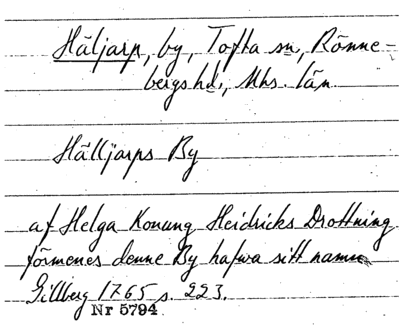 Häljarp, by, Tofta sn, Rönne-
bergs hd., Mhs. län.
Hälljarps By
af Helga Konung Heidricks Drottning
förmenes denne By hafwa sitt namn
Gillberg 1765 s. 223.
Nr 5794